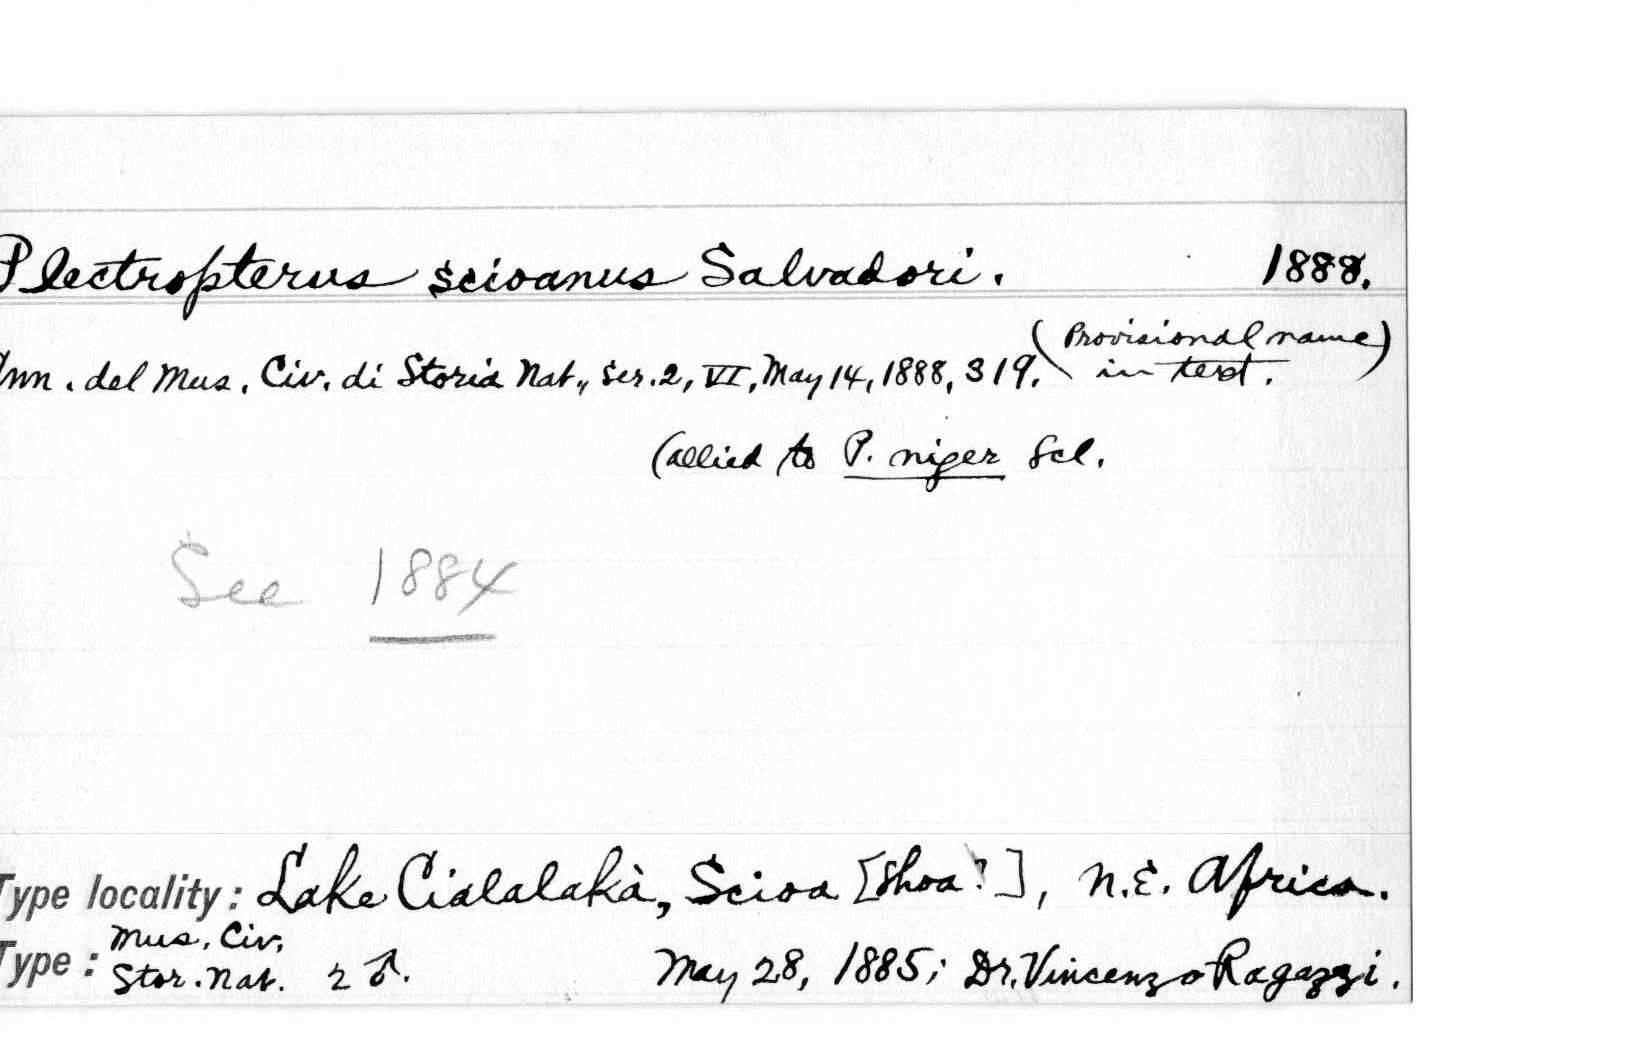 Plectropterus scioanus Salvadori. 1888.
Ann. del Mus. Civ. di Storia Nat., Ser. 2, VI, May 14, 1888, 319. (Provisional name in text.)
(allied to P. niger Scl.
See 1884
Type locality: Lake Cialalakà, Scioa [Shoa?], N.E. Africa.
Type: Mus. Civ. Stor. Nat. 2 ♂. May 28, 1885; Dr. Vincenzo Ragazzi.